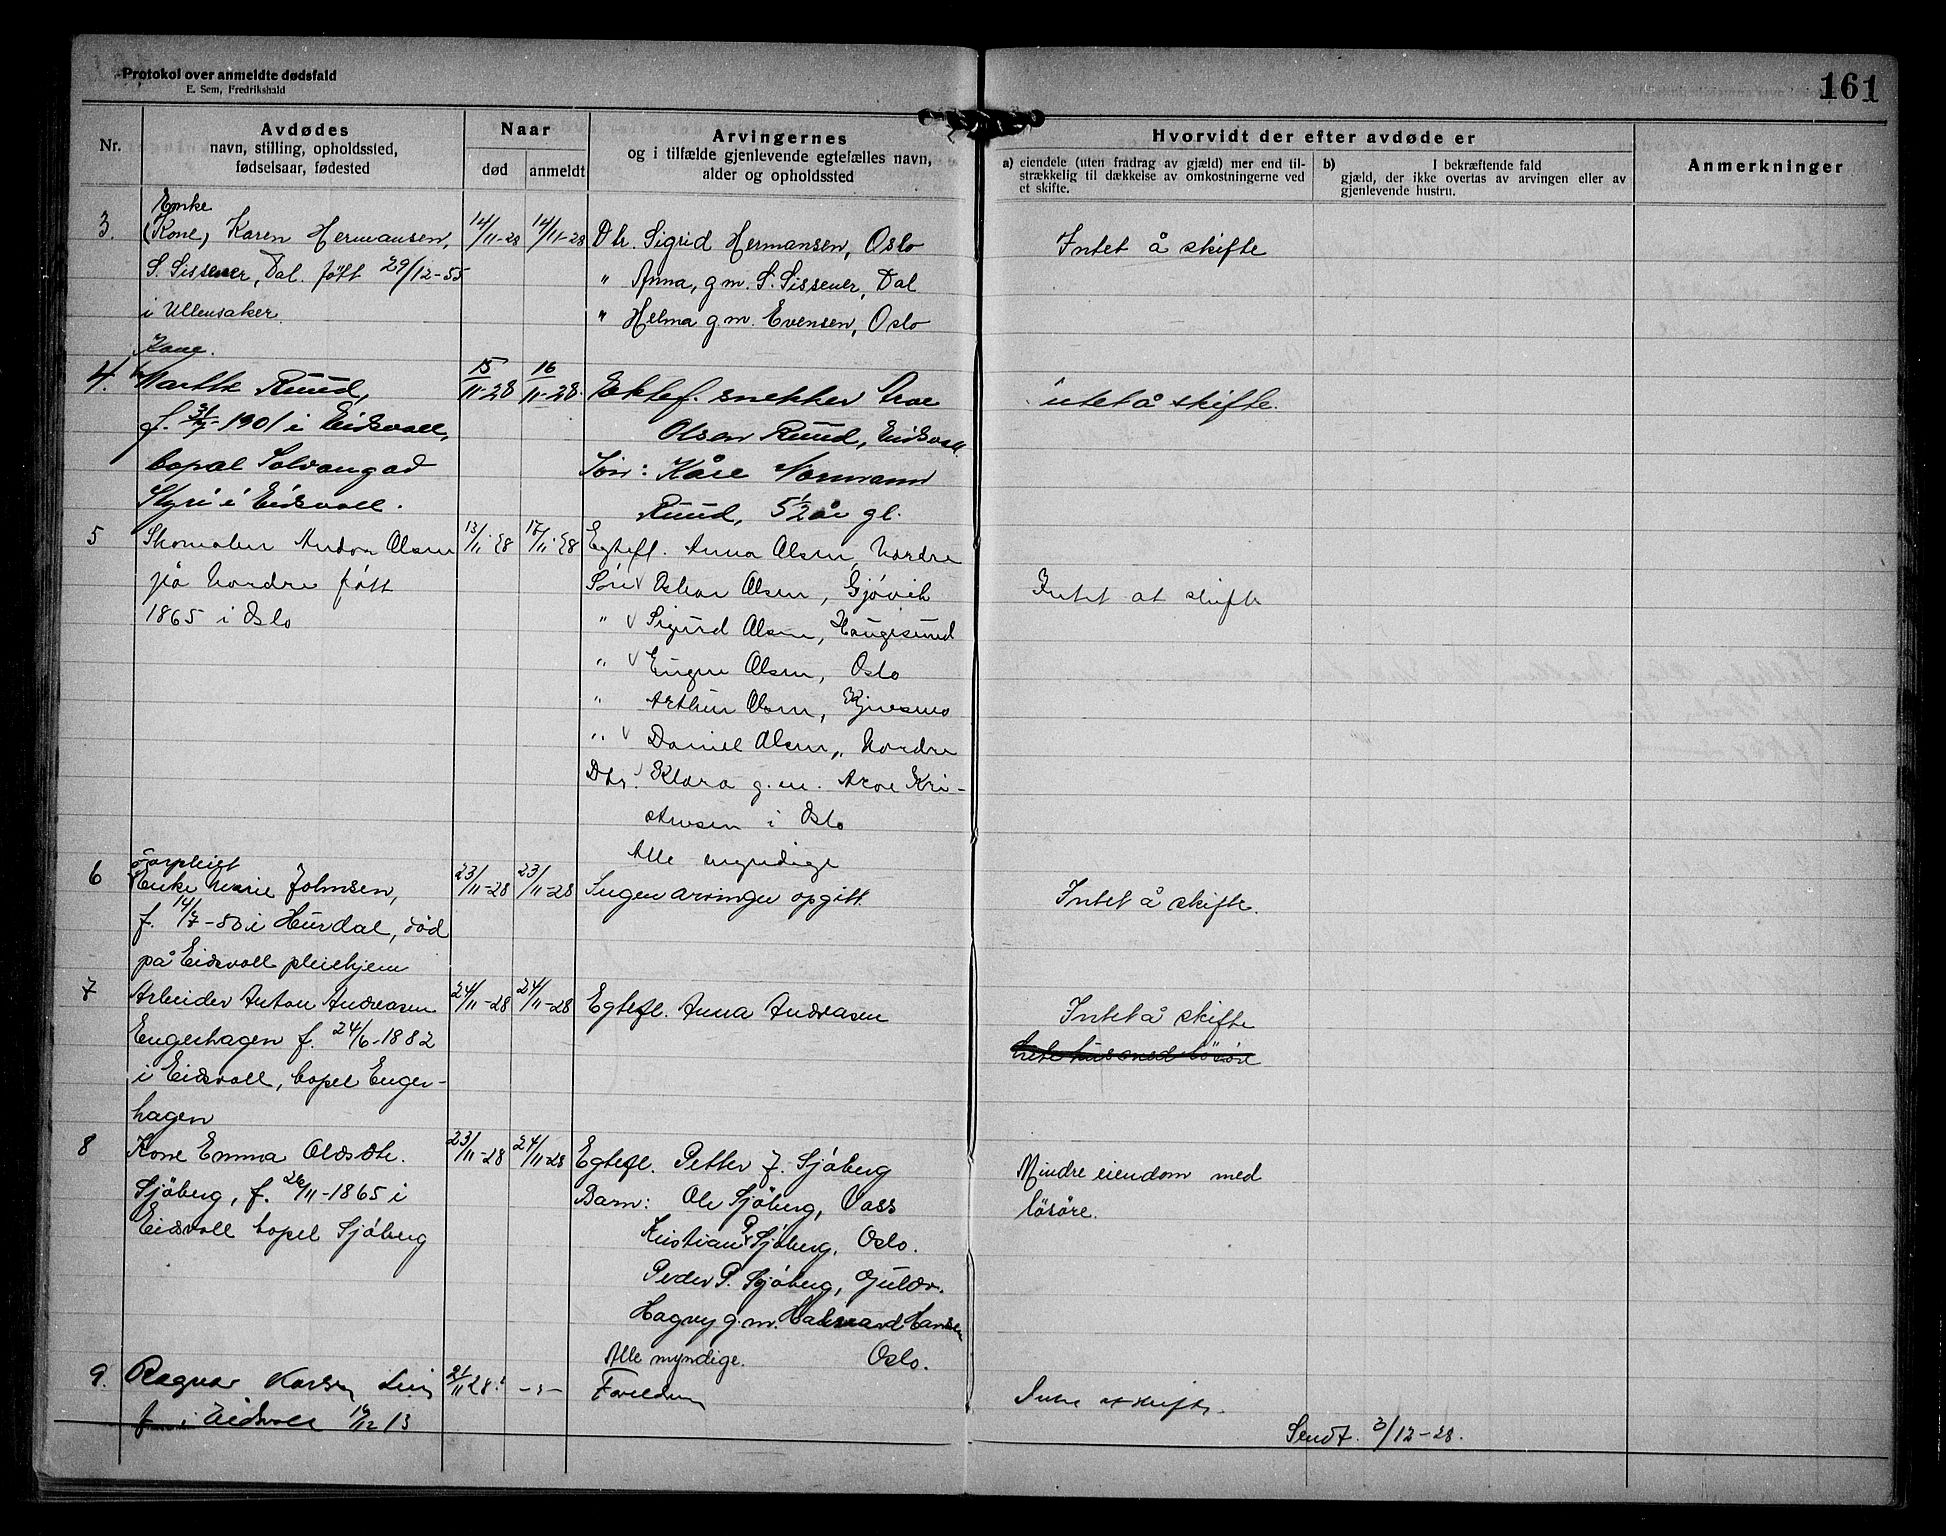 Protokol over anmeldte dødsfald
E. Sem, Fredrikshald
161
Nr.
Avdødes
navn, stilling, opholdssted,
fødselsaar, fødested
Naar
død
anmeldt
Arvingernes
og i tilfælde gjenlevende egtefælles navn,
alder og opholdssted
Hvorvidt der efter avdøde er
a) eiendele (uten fradrag av gjæld) mer end til-
strækkelig til dækkelse av omkostningerne ved
et skifte.
b) I bekræftende fald
gjæld, der ikke overtas av arvingen eller av
gjenlevende hustru.
Anmerkninger
Enke
3. (Kone) Karen Hermansen, 14/11-28 14/11-28 Dtr. Sigrid Hermansen, Oslo Intet å skifte
S. Sissener, Dal. født 29/12-55 " Anna, g.m. S. Sissener, Dal
i Ullensaker. " Helma g.m. Evensen, Oslo
Kone.
4. Marthe Ruud, 15/11-28 16/11-28. Ektef. snekker Arve intet å skifte.
f. -1901 i Eidsvoll, Olsen Ruud, Eidsvoll
bopæl Solvang ad Søn: Kåre Normann
Styri i Eidsvoll. Ruud, 5 1/2 år gl.
5 Skomaker Anton Olsen 13/11-28 17/11-28 Egtefl. Anna Olsen, Nordre
på Nordre født Søn Oskar Olsen, Gjøvik Intet at skifte
1865 i Oslo " Sigurd Olsen, Haugesund
" Eugen Olsen, Oslo
" Arthur Olsen,
" Daniel Olsen, Nordre
Dtr. Klara g.m. Arve Kri-
stensen i Oslo
Alle myndige
Forpleiet
6 Enke Marie Johnsen, 23/11-28 23/11-28 Ingen arvinger opgitt. Intet å skifte.
f. 14/7-50 i Hurdal, død
på Eidsvoll pleiehjem
7 Arbeider Anton Andreasen 24/11-28 24/11-28 Egtefl. Anna Andreasen Intet å skifte
Engerhagen f. 24/6-1882
i Eidsvoll, bopel Enger-
hagen
8 Kone Emma Olesdtr. 23/11-28 24/11-28 Egtefl. Petter J. Sjöberg Mindre eiendom med
Sjöberg, f. 26/11-1865 i Barn: Ole Sjöberg, Voss lösöre.
Eidsvoll bopel Sjöberg Kristian P. Sjöberg, Oslo.
Peder P. Sjöberg,
Hagny g.m. Halvard Hansen
Alle myndige. Oslo.
9. Ragnar Karlsen 21/11 28 -"- Foreldrene Intet at skifte.
f. i Eidsvoll 19/12 13
Sendt. 3/12-28.